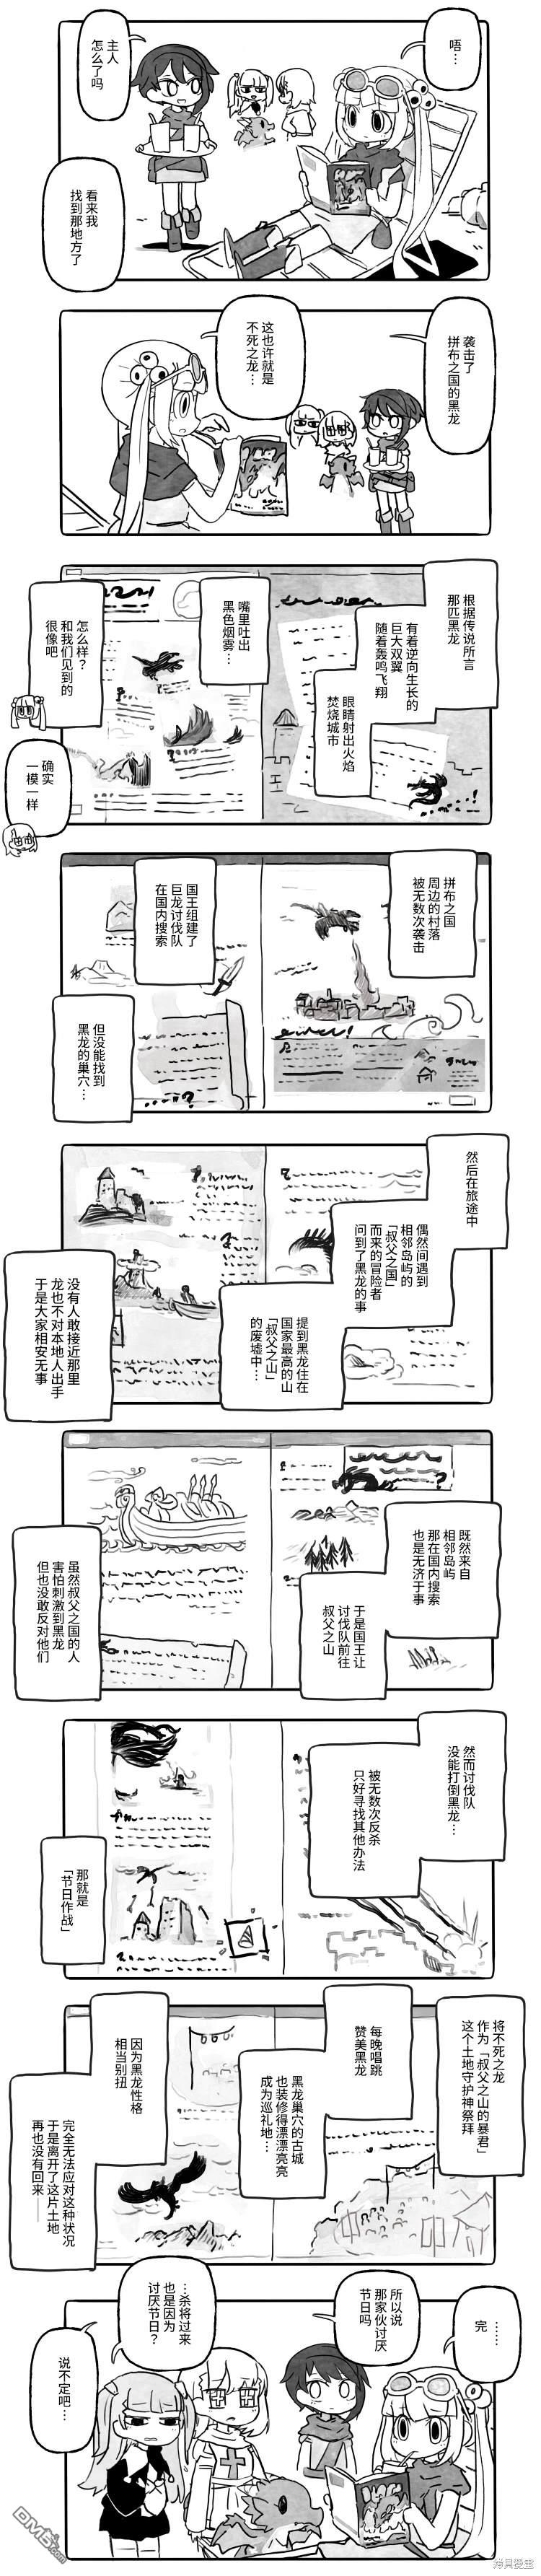 唔…
主人
怎么了吗
看来我
找到那地方了
袭击了
拼布之国的黑龙
这也许就是
不死之龙…
根据传说所言
那匹黑龙
有着逆向生长的
巨大双翼
随着轰鸣飞翔
眼睛射出火焰
焚烧城市
嘴里吐出
黑色烟雾…
怎么样？
和我们见到的
很像吧
确实
一模一样
拼布之国
周边的村落
被无数次袭击
国王组建了
巨龙讨伐队
在国内搜索
但没能找到
黑龙的巢穴…
然后在旅途中
偶然间遇到
相邻岛屿的
「叔父之国」
而来的冒险者
问到了黑龙的事
提到黑龙住在
国家最高的山
「叔父之山」
的废墟中…
没有人敢接近那里
龙也不对本地人出手
于是大家相安无事
既然来自
相邻岛屿
那在国内搜索
也是无济于事
于是国王让
讨伐队前往
叔父之山
虽然叔父之国的人
害怕刺激到黑龙
但也没敢反对他们
然而讨伐队
没能打倒黑龙…
被无数次反杀
只好寻找其他办法
那就是
「节日作战」
将不死之龙
作为「叔父之山的暴君」
这个土地守护神祭拜
每晚唱跳
赞美黑龙
黑龙巢穴的古城
也装修得漂漂亮亮
成为巡礼地…
因为黑龙性格
相当别扭
完全无法应对这种状况
于是离开了这片土地
再也没有回来——
……
完
所以说
那家伙讨厌
节日吗
…杀将过来
也是因为
讨厌节日？
说不定吧…
拷貝漫畫